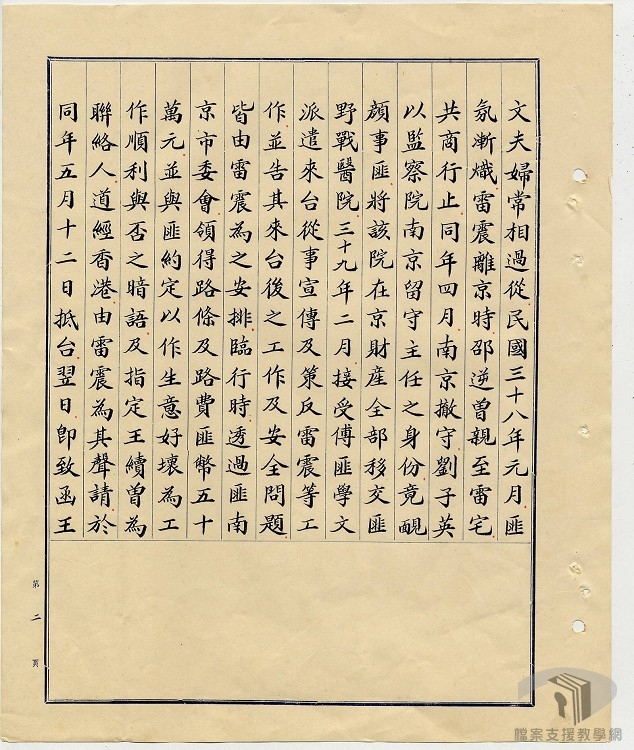 文夫婦常相過從民國三十八年元月匪
氛漸熾雷震離京時邵逆曾親至雷宅
共商行止同年四月南京撤守劉子英
以監察院南京留守主任之身份竟靦
顏事匪將該院在京財產全部移交匪
野戰醫院三十九年二月接受傅匪學文
派遣來台從事宣傳及策反雷震等工
作並告其來台後之工作及安全問題
皆由雷震為之安排臨行時透過匪南
京市委會領得路條及路費匪幣五十
萬元並與匪約定以作生意好壞為工
作順利與否之暗語及指定王續曾為
聯絡人道經香港由雷震為其聲請於
同年五月十二日抵台翌日即致函王
第二頁
檔案支援教學網